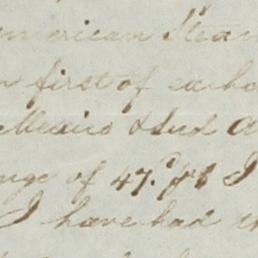 merican Stea
first of each
Mexico & Sud A
nge of 47. I
I have had th